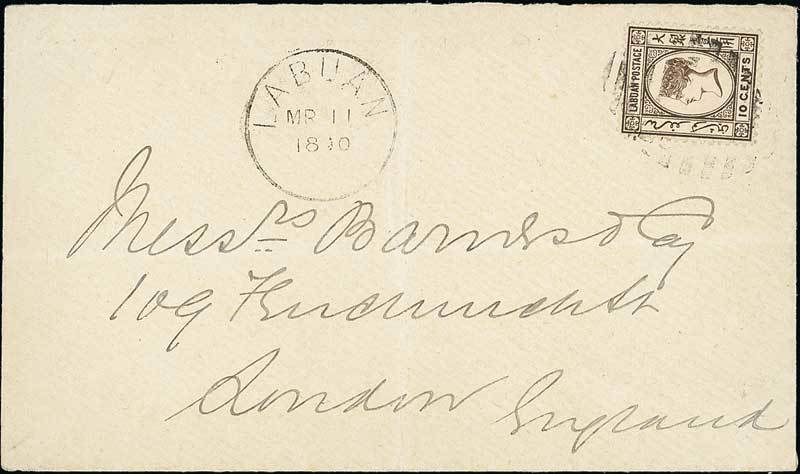 LABUAN
MR 11
LABUAN POSTAGE
10 CENTS
Messrs Barnes & Co
109 Fenchurch St
London England